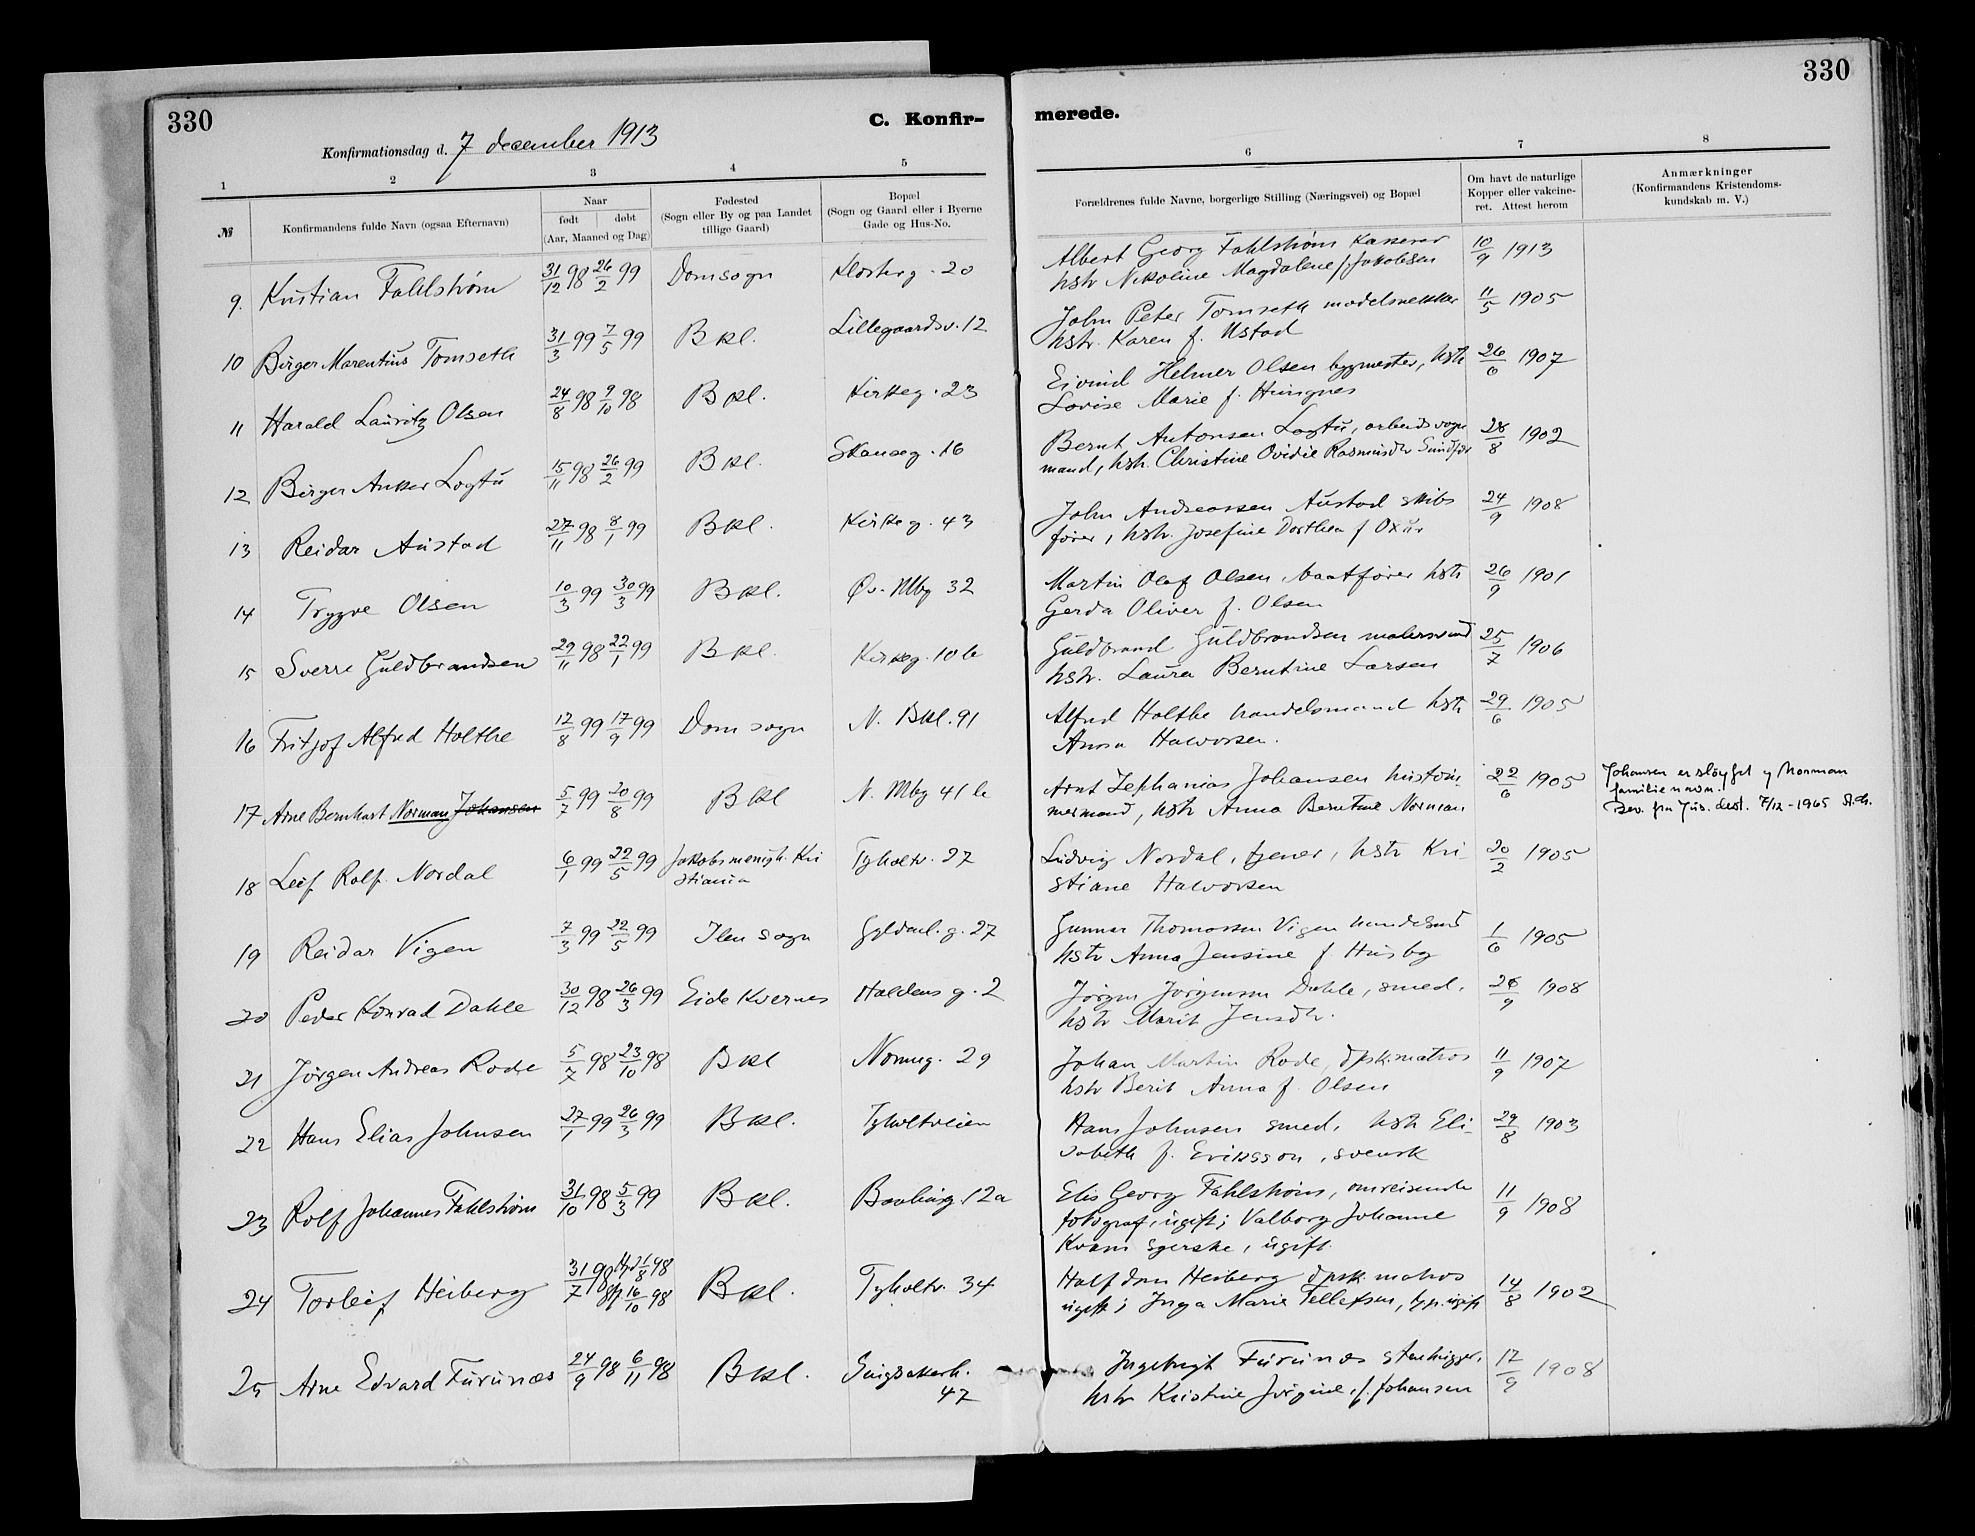 330
330
C. Konfir- merede.
Konfirmationsdag d. 7 december 1913
1 2 3 4 5 6 7 8
№
Konfirmandens fulde Navn (ogsaa Efternavn)
Naar
født døbt
(Aar, Maaned og Dag)
Fødested
(Sogn eller By og paa Landet
tillige Gaard)
Bopæl
(Sogn og Gaard eller i Byerne
Gade og Hus-No.
Forældrenes fulde Navne, borgerlige Stilling (Næringsvei) og Bopæl
Om havt de naturlige
Kopper eller vakcine-
ret. Attest herom
Anmærkninger
(Konfirmandens Kristendoms-
kundskab m. V.)
9. Kristian Fahlstrøm 31/12 98 26/2 99 Domsogn Klosterg. 20 Albert Georg Fahlstrøm kasserer 10/9 1913
hstr Nikoline Magdalene f. Jakobsen
10 Birger Marentius Tomseth 31/3 99 7/5 99 Bkl. Lillegaardsv. 12 John Peter Tomseth modelsnekker 11/5 1905
hstr. Karen f. Ustad
11 Harald Lauritz Olsen 24/8 98 9/10 98 Bkl. Kirkeg. 23 Eivind Helmer Olsen bygmester, hstr 26/6 1907
Lovise Marie f. Hungnes
12 Birger Anker Logtu 15/11 98 26/2 99 Bkl. Skanseg. 16 Bernt Antonsen Logtu, arbeidsvogn 28/8 1902
mand, hstr. Christine Ovidie Rasmusdtr
13 Reidar Austad 27/11 98 8/1 99 Bkl. Kirkeg. 43 John Andreassen Austad skibs 24/9 1908
fører, hstr. Josefine Dorthea f
14 Trygve Olsen 10/3 99 30/3 99 Bkl. Øv. Mbg 32 Martin Olaf Olsen, baatfører hstr 26/9 1901
Gerda Oliver f. Olsen
15 Sverre Guldbrandsen 29/11 98 22/1 99 Bkl. Kirkeg. 10 b Guldbrand Guldbrandsen malersvend 25/7 1906
hstr. Laura Berntine Larsen
16 Fritjof Alfred Holthe 12/8 99 17/9 99 Domsogn N. Bkl. 91 Alfred Holthe handelsmand hstr 29/6 1905
Anna Halvorsen.
17 Arne Bernhart Norman Johansen 5/7 99 20/8 99 Bkl N. Mbg 41 b Arnt Zephanias Johansen hustøm- 22/6 1905 Johansen er sløyfet og Norman
mermand, hstr Anna Berntine Norman familienavn.
Bev. fra Jus. dept. 7/12-1965
18 Leif Rolf Nordal 6/1 99 22/5 99 Jakobs menigh. Kri Tyholtv. 27 Ludvig Nordal, tjener, hstr Kri- 20/2 1905
stiania stiane Halvorsen
19 Reidar Vigen 7/3 99 22/5 99 Ilen sogn Gyldenl. g. 27 Gunnar Thomassen Vigen handelsmd 1/6 1905
hstr Anna Jensine f. Husby
20 Peder Konrad Dahle 30/12 98 26/3 99 Eide Kvernes Haldens g. 2 Jörgen Jörgensen Dahle, smed. 26/9 1908
hstr Marit Jensdtr.
21 Jörgen Andreas Rode 5/7 98 23/10 98 Bkl Nonneg. 29 Johan Martin Rode, dpsk.matros 11/9 1907
hstr Berit Anna f. Olsen
22 Hans Elias Johnsen 27/1 99 26/3 99 Bkl. Tyholtveien Hans Johnsen smed, hstr Eli- 29/8 1903
sabeth f. Eriksson, svensk
23 Rolf Johannes Fahlstrøm 31/10 98 5/3 99 Bkl. 12a Elis Georg Fahlstrøm, omreisende 11/9 1908
fotograf, ugift; Valborg Johanne
Kvam syerske, ugift.
24 Torleif Heiberg 31/7 98 21/8 98 16/10 98 Bkl. Tyholtv. 34 Halfdan Heiberg dpsk. matros 14/8 1902
ugift; Inga Marie Tellefsen, ugift
25 Arne Edvard Furunæs 24/9 98 6/11 98 Bkl. 47 Ingebrigt Furunæs stenhugger. 17/9 1908
hstr Kristine Jörgine, f. Johansen